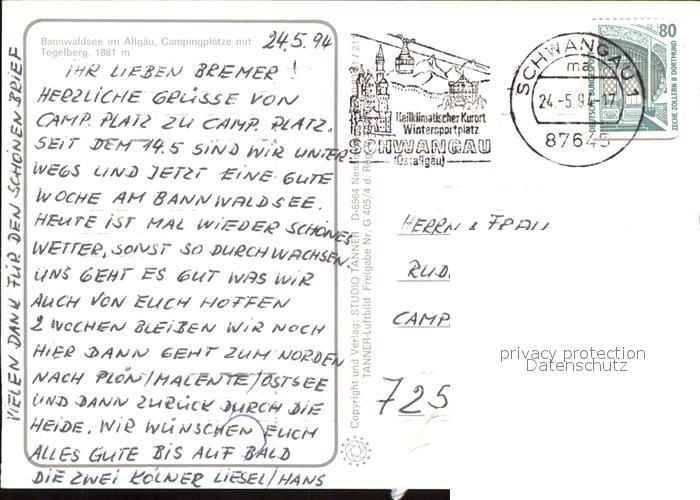 Bannwaldsee im Allgäu, Campingplätze mit
Tegelberg, 1881 m
24.5.94
IHR LIEBEN BREMER!
HERZLICHE GRÜSSE VON
CAMP. PLATZ ZU CAMP. PLATZ.
SEIT DEM 14.5 SIND WIR UNTER
WEGS UND JETZT EINE GUTE
WOCHE AM BANNWALDSEE.
HEUTE IST MAL WIEDER SCHÖNES
WETTER, SONST SO DURCHWACHSEN.
UNS GEHT ES GUT WAS WIR
AUCH VON EUCH HOFFEN
2 WOCHEN BLEIBEN WIR NOCH
HIER DANN GEHT ZUM NORDEN
NACH PLÖN/MALENTE/OSTSEE
UND DANN ZURÜCK DURCH DIE
HEIDE. WIR WÜNSCHEN EUCH
ALLES GUTE BIS AUF BALD
DIE ZWEI KÖLNER LIESEL/HANS
VIELEN DANK FÜR DEN SCHÖNEN BRIEF
Copyright und Verlag: STUDIO TANNER D-8964
TANNER-Luftbild Freigabe Nr. G 405/4 d. Reg.
Heilklimatischer Kurort
Wintersportplatz
SCHWANGAU
(Ostallgäu)
SCHWANGAU 1
ma
24.-5.94-17
87645
80
DEUTSCHE BUNDESPOST
ZECHE ZOLLERN II DORTMUND
HERRN & FRAU
RUD
CAMP
725
privacy protection
Datenschutz